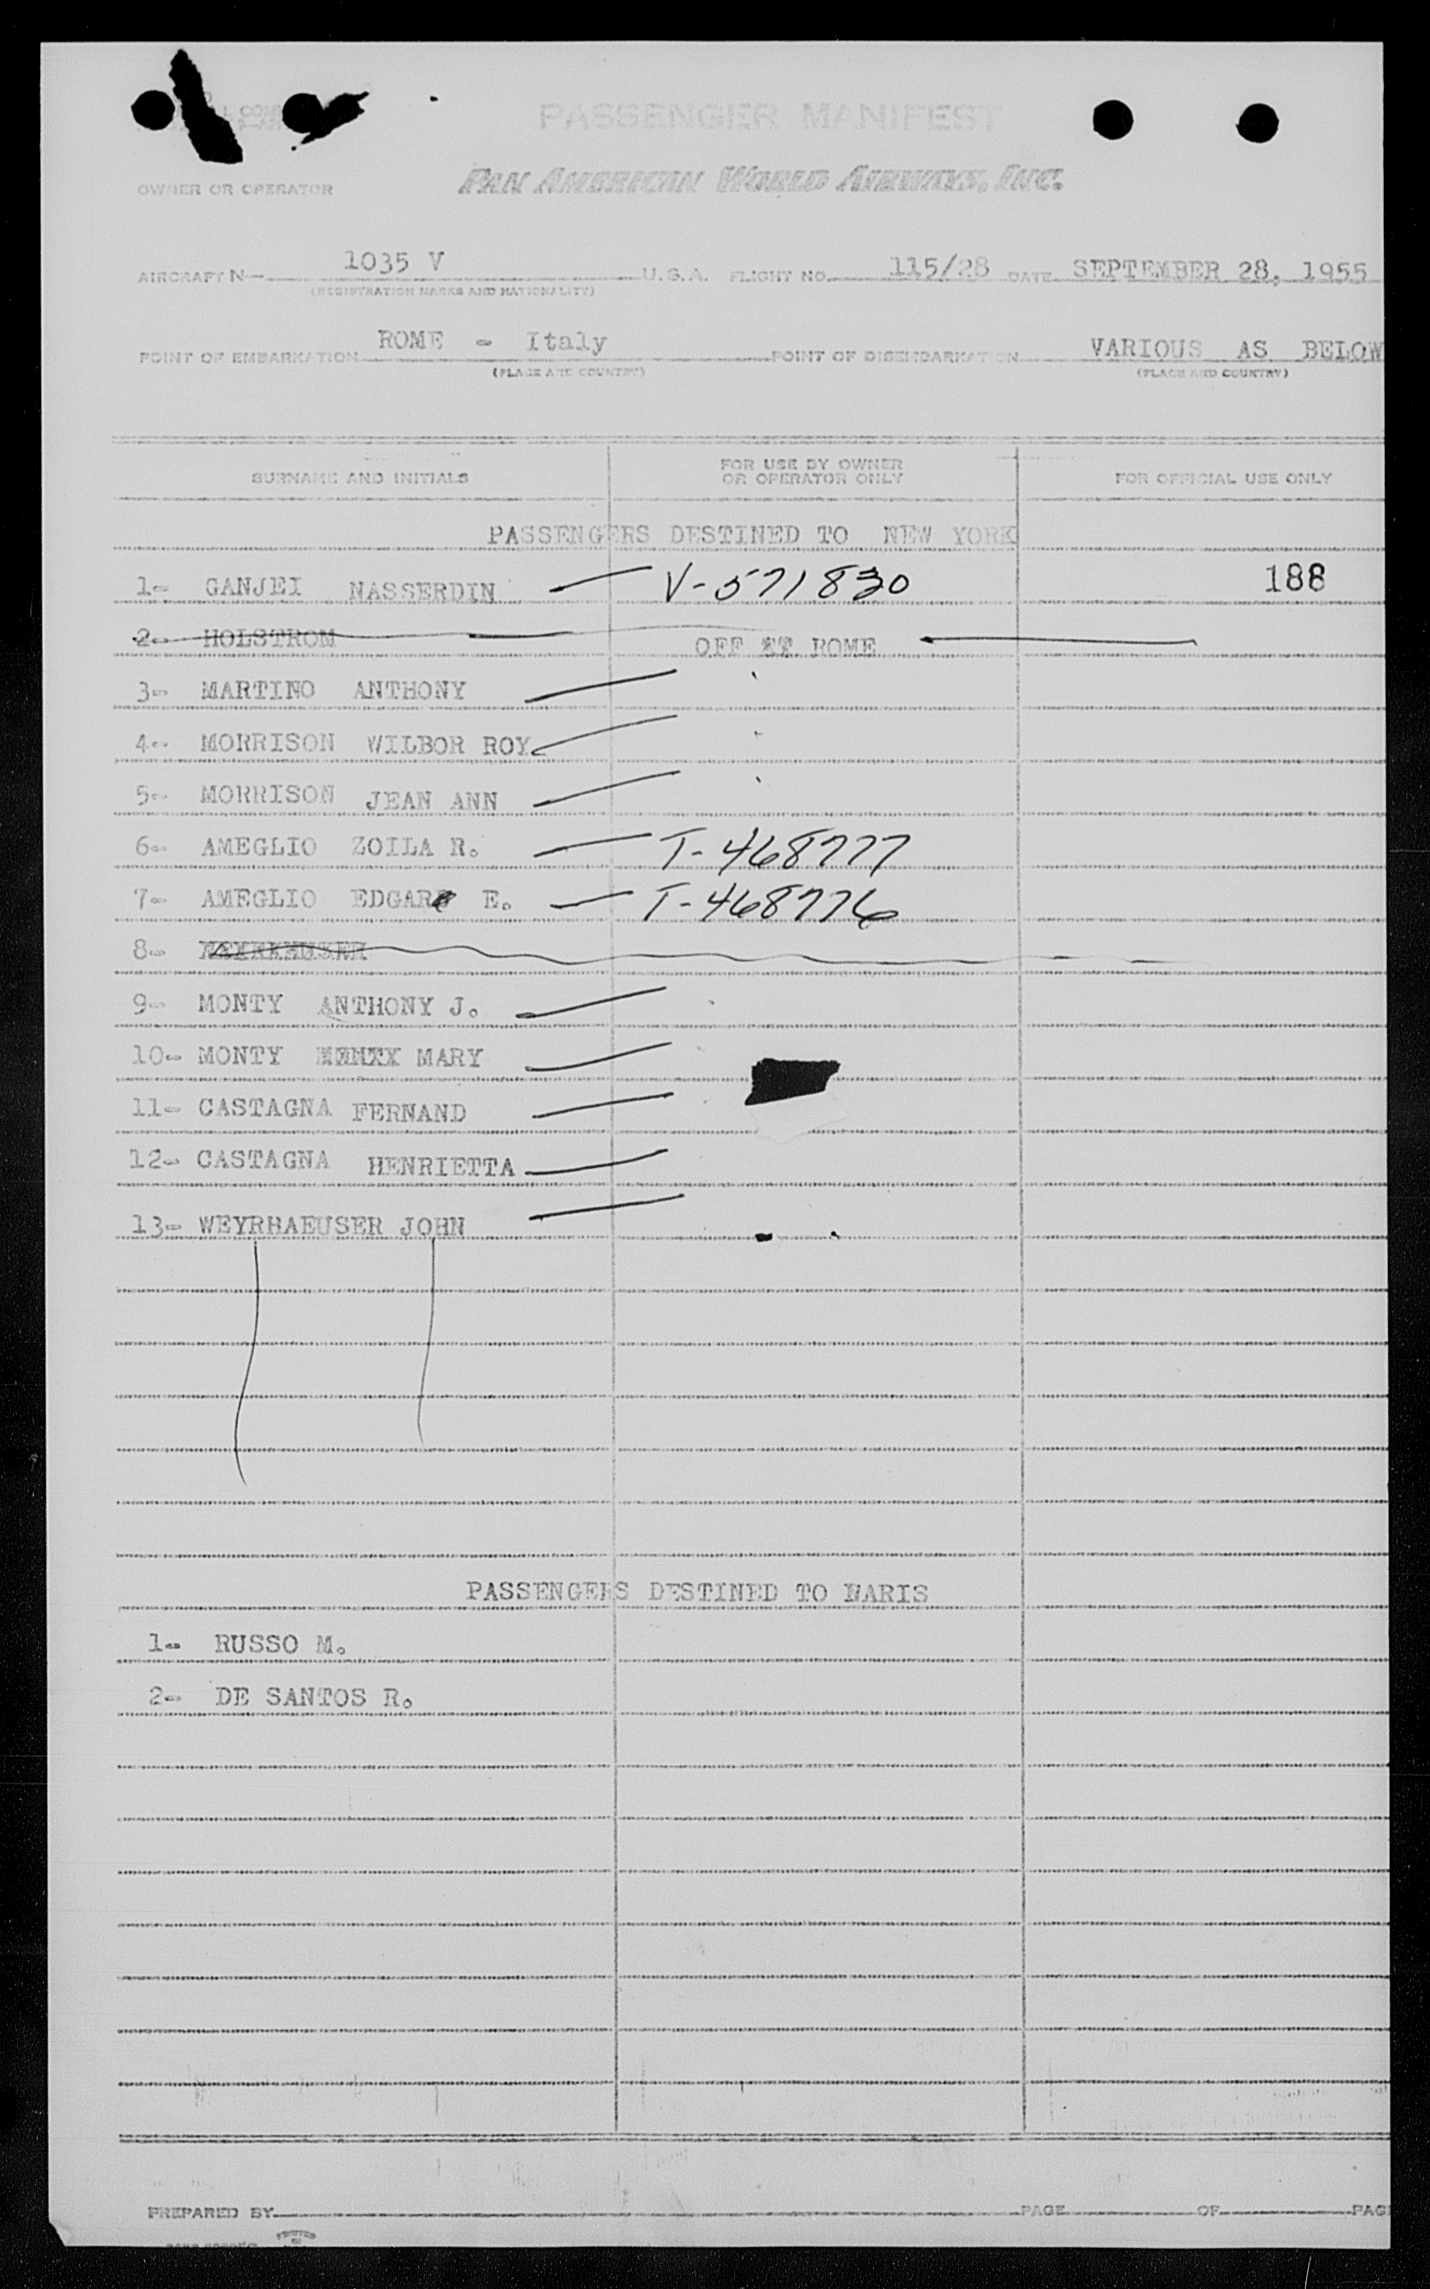 PASSENGER MANIFEST
OWNER OR OPERATOR PAN AMERICAN WORLD AIRWAYS, INC.
AIRCRAFT N— 1035 V U.S.A. FLIGHT NO. 115/28 DATE SEPTEMBER 28, 1955
(REGISTRATION MARKS AND NATIONALITY)
POINT OF EMBARKATION ROME - Italy POINT OF DISEMBARKATION VARIOUS AS BELOW
(PLACE AND COUNTRY) (PLACE AND COUNTRY)
SURNAME AND INITIALS FOR USE BY OWNER OR OPERATOR ONLY FOR OFFICIAL USE ONLY
PASSENGERS DESTINED TO NEW YORK
1- GANJEI NASSERDIN V-571830 188
2- HOLSTROM OFF AT ROME
3- MARTINO ANTHONY
4- MORRISON WILBOR ROY
5- MORRISON JEAN ANN
6- AMEGLIO ZOILA R. T-468777
7- AMEGLIO EDGAR E. T-468776
8-
9- MONTY ANTHONY J.
10- MONTY MARY
11- CASTAGNA FERNAND
12- CASTAGNA HENRIETTA
13- WEYRHAEUSER JOHN
PASSENGERS DESTINED TO PARIS
1- RUSSO M.
2- DE SANTOS R.
PREPARED BY PAGE OF PAG
PRINTED